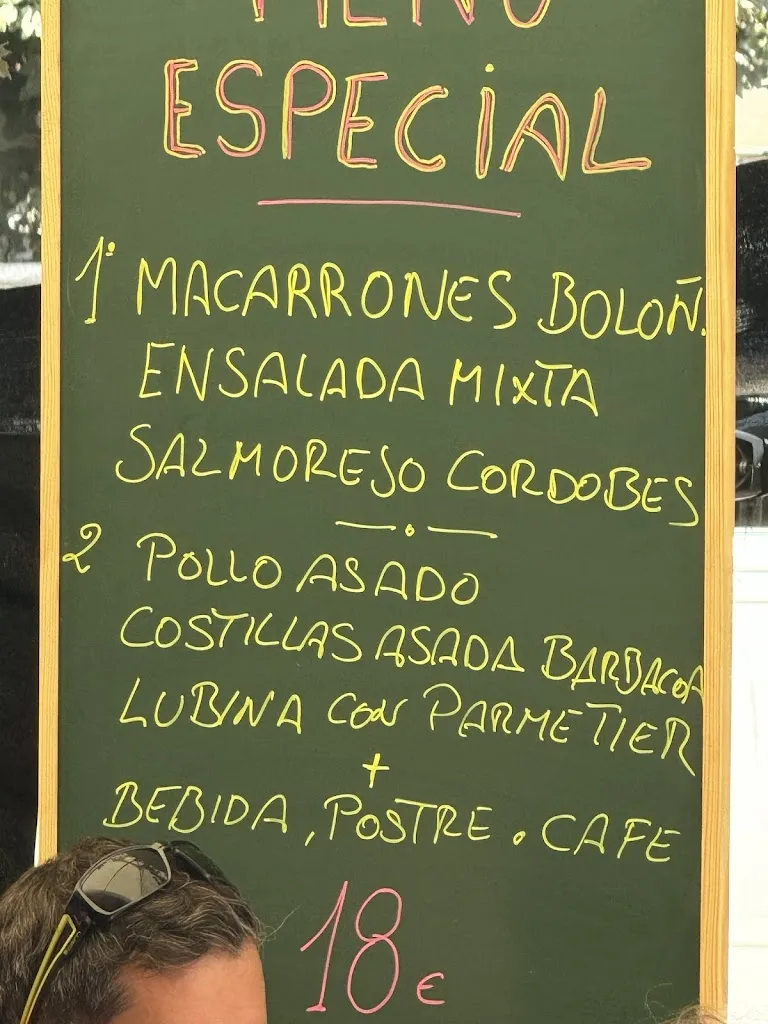 MENÚ
ESPECiAL
1º MACARRONES BOLOÑ.
ENSALADA MIXTA
SALMOREJO CORDOBES
2 POLLO ASADO
COSTILLAS ASADA BARBACOA
LUBINA CON PARMETIER
+
BEBIDA, POSTRE. CAFE
18 €